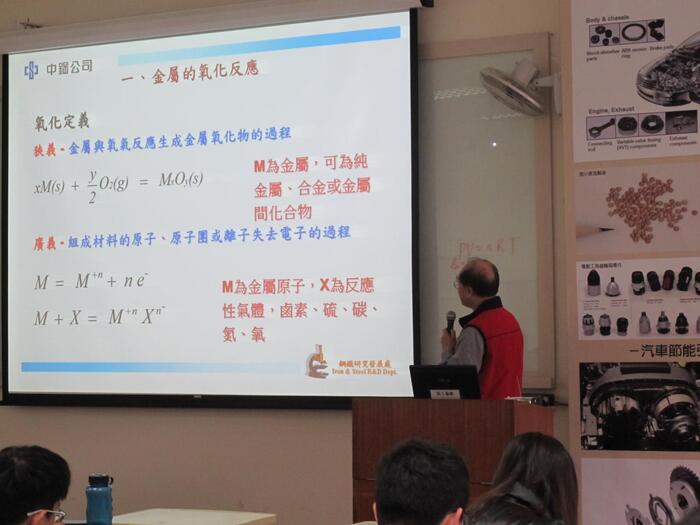 中鋼公司
一、金屬的氧化反應
氧化定義
狹義 - 金屬與氧氣反應生成金屬氧化物的過程
xM(s) + y/2 O₂(g) = MₓOᵧ(s)
M為金屬，可為純
金屬、合金或金屬
間化合物
廣義 - 組成材料的原子、原子團或離子失去電子的過程
M = M⁺ⁿ + n e⁻
M + X = M⁺ⁿ Xⁿ⁻
M為金屬原子，X為反應
性氣體，鹵素、硫、碳、
氮、氧
鋼鐵研究發展處
Iron & Steel R&D Dept.
PV=nRT
Body & chassis
Shock absorber parts
ABS sensor ring
Brake pads
Engine, Exhaust
Connecting rod
Variable valve timing (VVT) components
Exhaust components
－汽車節能